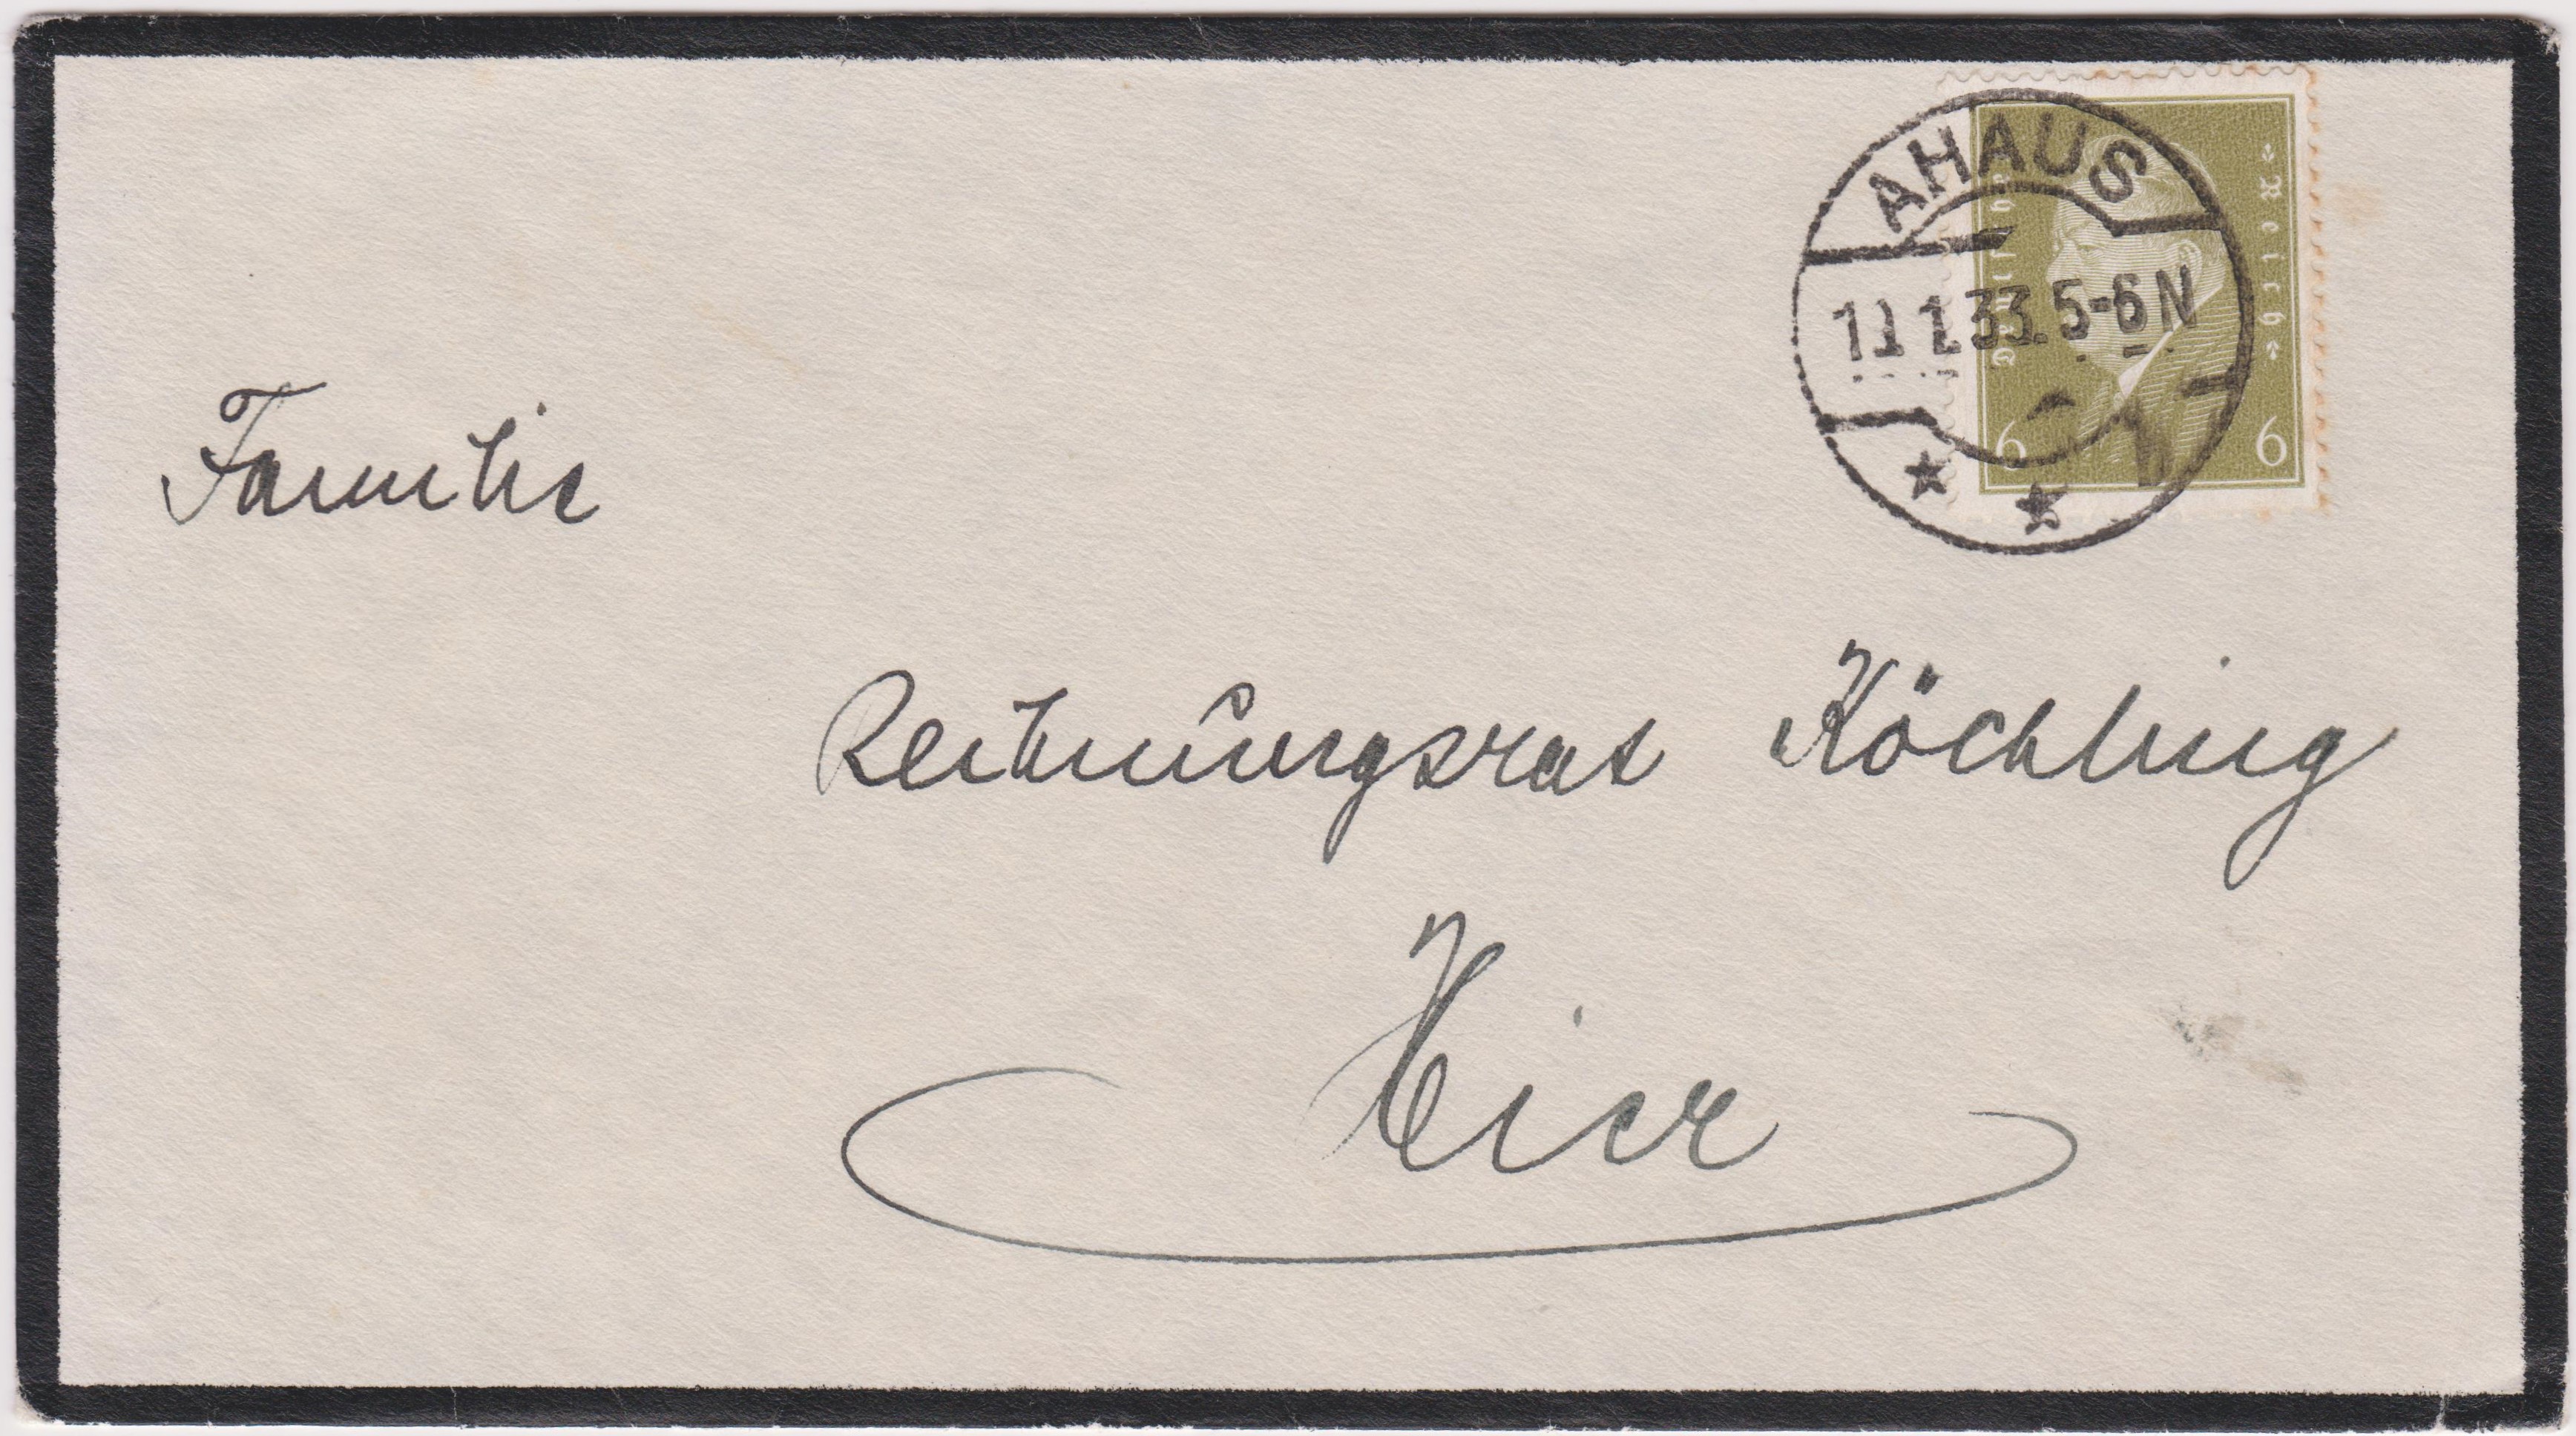 AHAUS
11.1.33.5-6 N
Deutsches Reich
6 6
Familie
Rechnungsrat Köchling
Hier